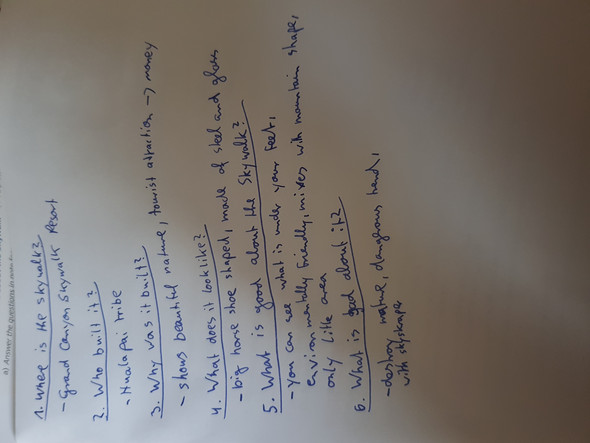 a) Answer the questions in
1. Where is the skywalk?
- Grand Canyon Skywalk Resort
2. Who built it?
- Hualapai tribe
3. Why was it built?
- shows beautiful nature, tourist attraction -> money
4. What does it look like?
- big horse shoe shaped, made of steel and glass
5. What is good about the Skywalk?
- you can see what is under your feet,
environmentally friendly, mixes with mountain shape,
only little area
6. What is good about it?
- destroy nature, dangerous
with skyskrapes